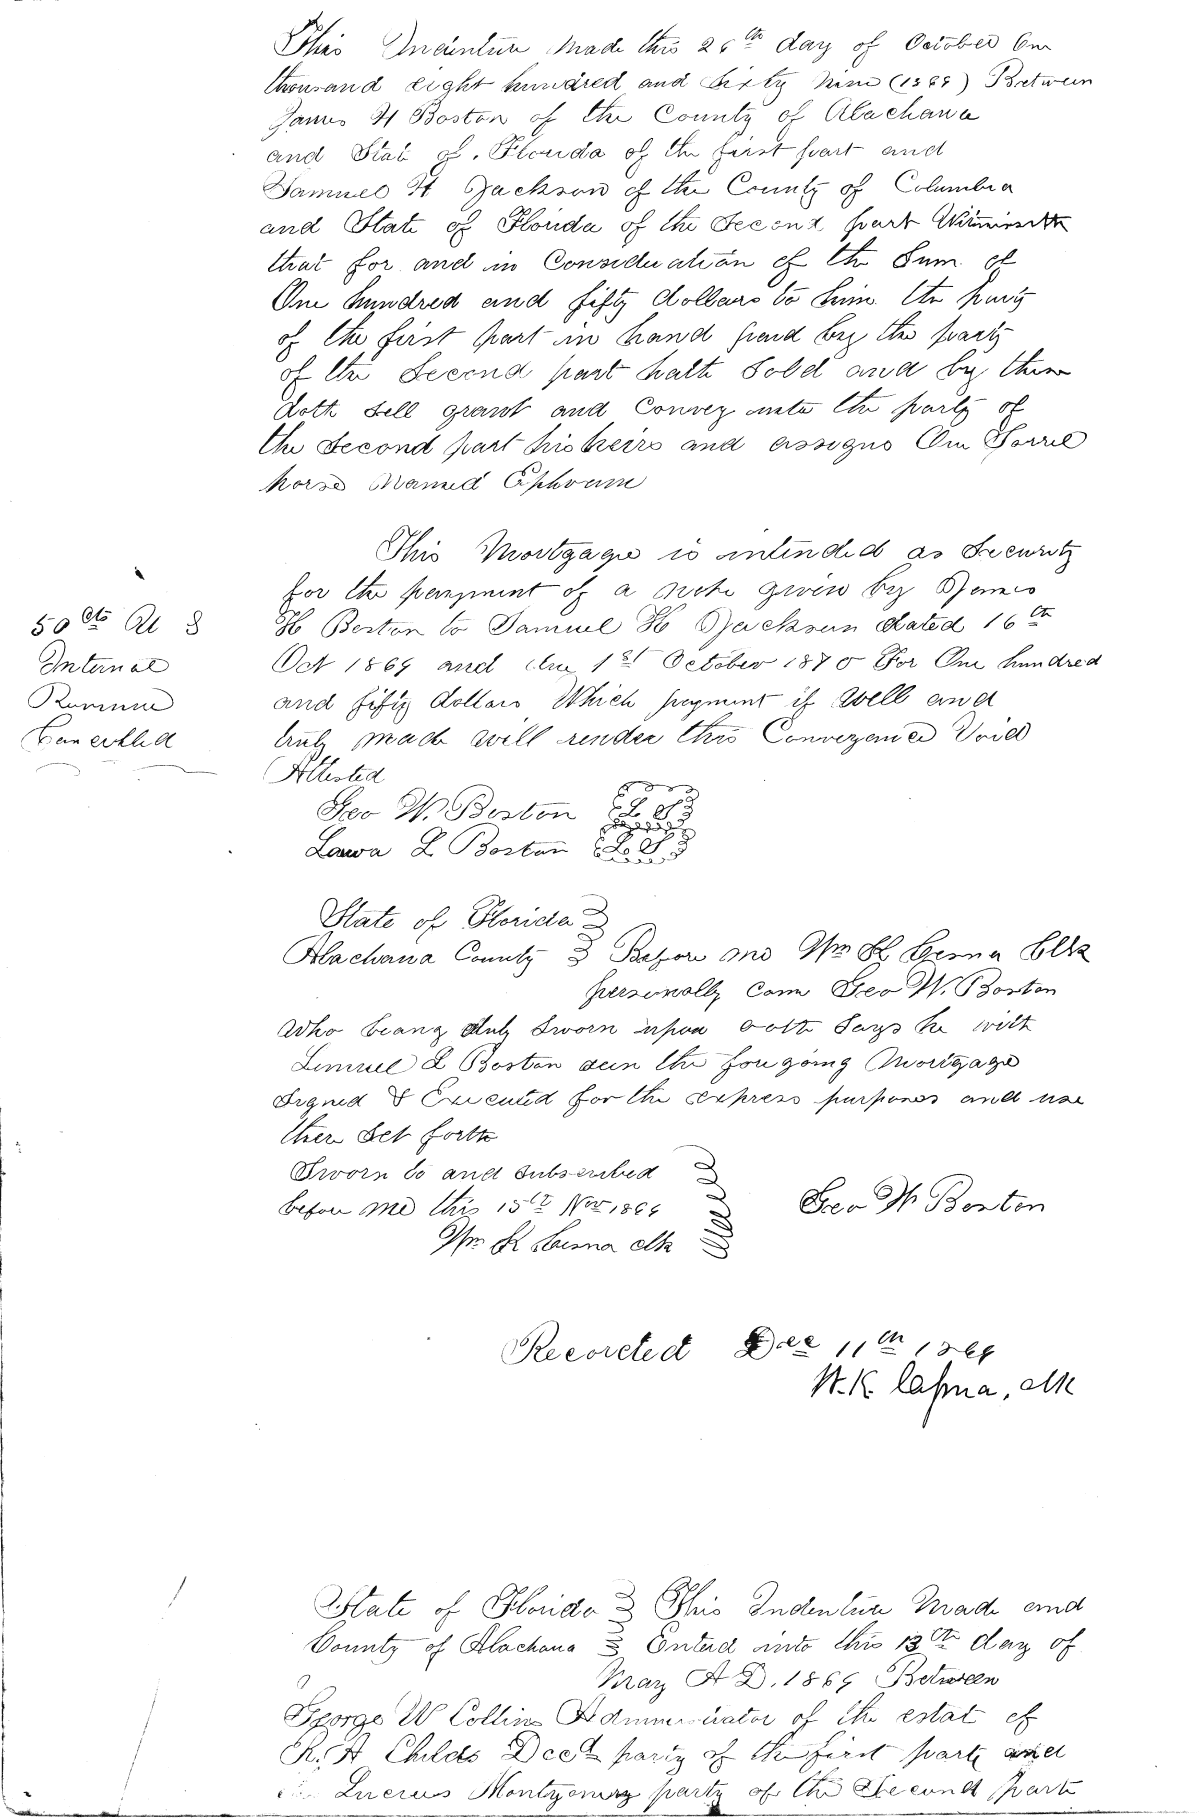 This Indenture Made this 26th day of October One
thousand eight hundred and Sixty Nine (1869) Between
James H Boston of the County of Alachaua
and State of Florida of the first part and
Samuel H Jackson of the County of Columbia
and State of Florida of the Second part Witnesseth
that for and in Consideration of the Sum of
One hundred and fifty dollars to him the party
of the first part in hand paid by the party
of the Second part hath Sold and by these
doth sell grant and Convey unto the party of
the Second part his heirs and assigns One Sorrel
horse Named Ephraim
This Mortgage is intended as Security
for the payment of a note given by James
H Boston to Samuel H Jackson dated 16th
Oct 1869 and due 1st October 1870 For One hundred
and fifty dollars Which payment if Well and
truly made will render this Conveyance Void
50 cts
Internal
Revenue
Cancelled
Attested
Geo W. Boston L S
L Boston L S
State of Florida
Alachaua County Before me Wm K Cessna Clk
personally came Geo W. Boston
Who being duly Sworn upon oath Says he with
Lemuel L Boston seen the foregoing Mortgage
Signed & Executed for the express purposes and use
there Set forth
Sworn to and subscribed
before me this 15th Nov 1869
Geo W Boston
Wm K Cessna clk
Recorded Dec 11th 1869
W. K. Cessna, clk
State of Florida This Indenture Made and
County of Alachaua Entered into this 13th day of
May A D. 1869 Between
George W Collins Administrator of the estat of
R. A Childs Decd party of the first part and
Lucius Montgomery party of the Second part